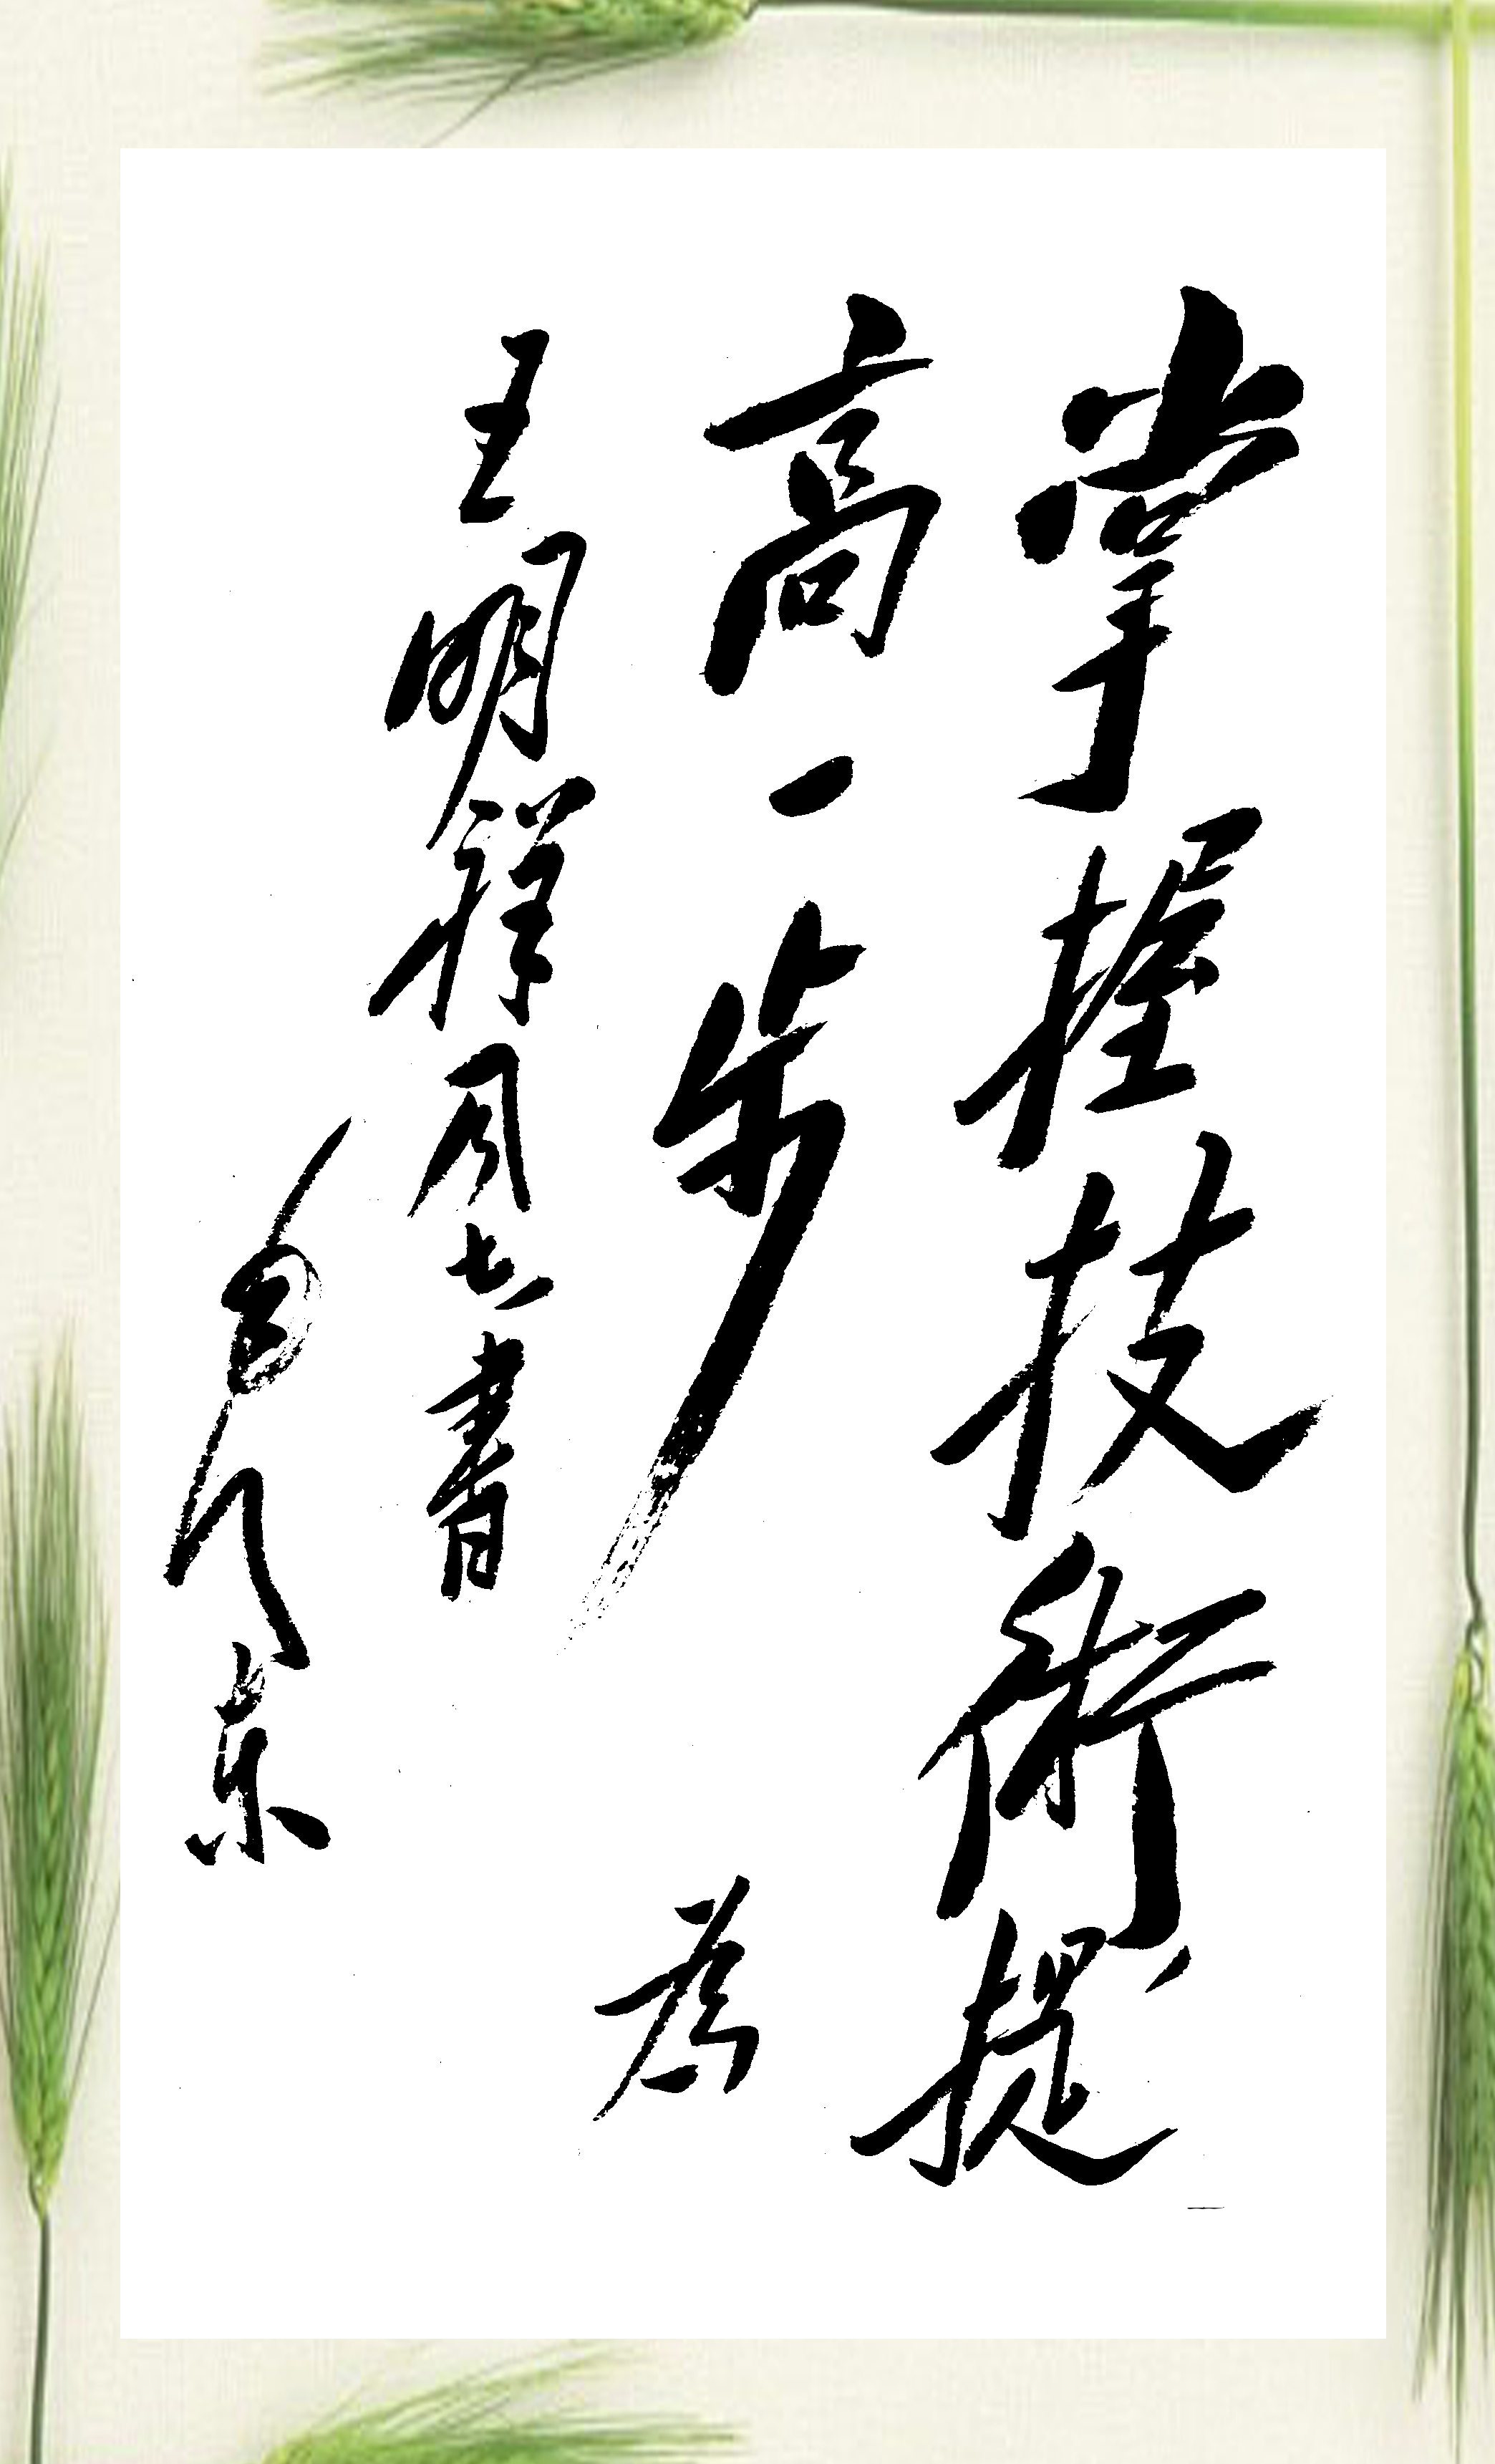 掌握技術提
高一步 為
王明祥同志書
毛泽东